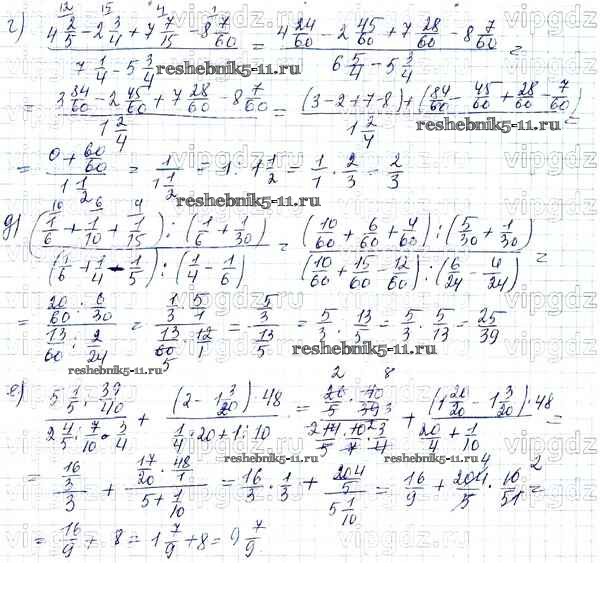 г) (4 2/5 − 2 3/4 + 7 7/15 − 8 7/60) / (7 1/4 − 5 3/4) = (4 24/60 − 2 45/60 + 7 28/60 − 8 7/60) / (6 5/4 − 5 3/4) =
= (3 84/60 − 2 45/60 + 7 28/60 − 8 7/60) / (1 2/4) = ((3−2+7−8) + (84/60 − 45/60 + 28/60 − 7/60)) / (1 2/4) =
= (0 + 60/60) / (1 1/2) = 1 / (1 1/2) = 1 : 1 1/2 = 1/1 · 2/3 = 2/3
д) ((1/6 + 1/10 + 1/15) : (1/6 + 1/30)) / ((1/6 + 1/4 − 1/5) : (1/4 − 1/6)) = ((10/60 + 6/60 + 4/60) : (5/30 + 1/30)) / ((10/60 + 15/60 − 12/60) : (6/24 − 4/24)) =
= (20/60 : 6/30) / (13/60 : 2/24) = (1/3 · 5/1) / (13/60 · 12/1) = (5/3) / (13/5) = 5/3 : 13/5 = 5/3 · 5/13 = 25/39
е) (5 1/5 : 39/40) / (2 4/5 : 7/10 · 3/4) + ((2 − 1 3/20) · 48) / (1/4 · 20 + 1 : 10) = (26/5 · 40/39) / (14/5 · 10/7 · 3/4) + ((1 20/20 − 1 3/20) · 48) / (20/4 + 1/10) =
= (16/3) / 3 + (17/20 · 48/1) / (5 + 1/10) = 16/3 · 1/3 + (204/5) / (5 1/10) = 16/9 + 204/5 · 10/51 =
= 16/9 + 8 = 1 7/9 + 8 = 9 7/9
reshebnik5-11.ru
reshebnik5-11.ru
reshebnik5-11.ru
reshebnik5-11.ru
reshebnik5-11.ru
reshebnik5-11.ru
reshebnik5-11.ru
vipgdz.ru